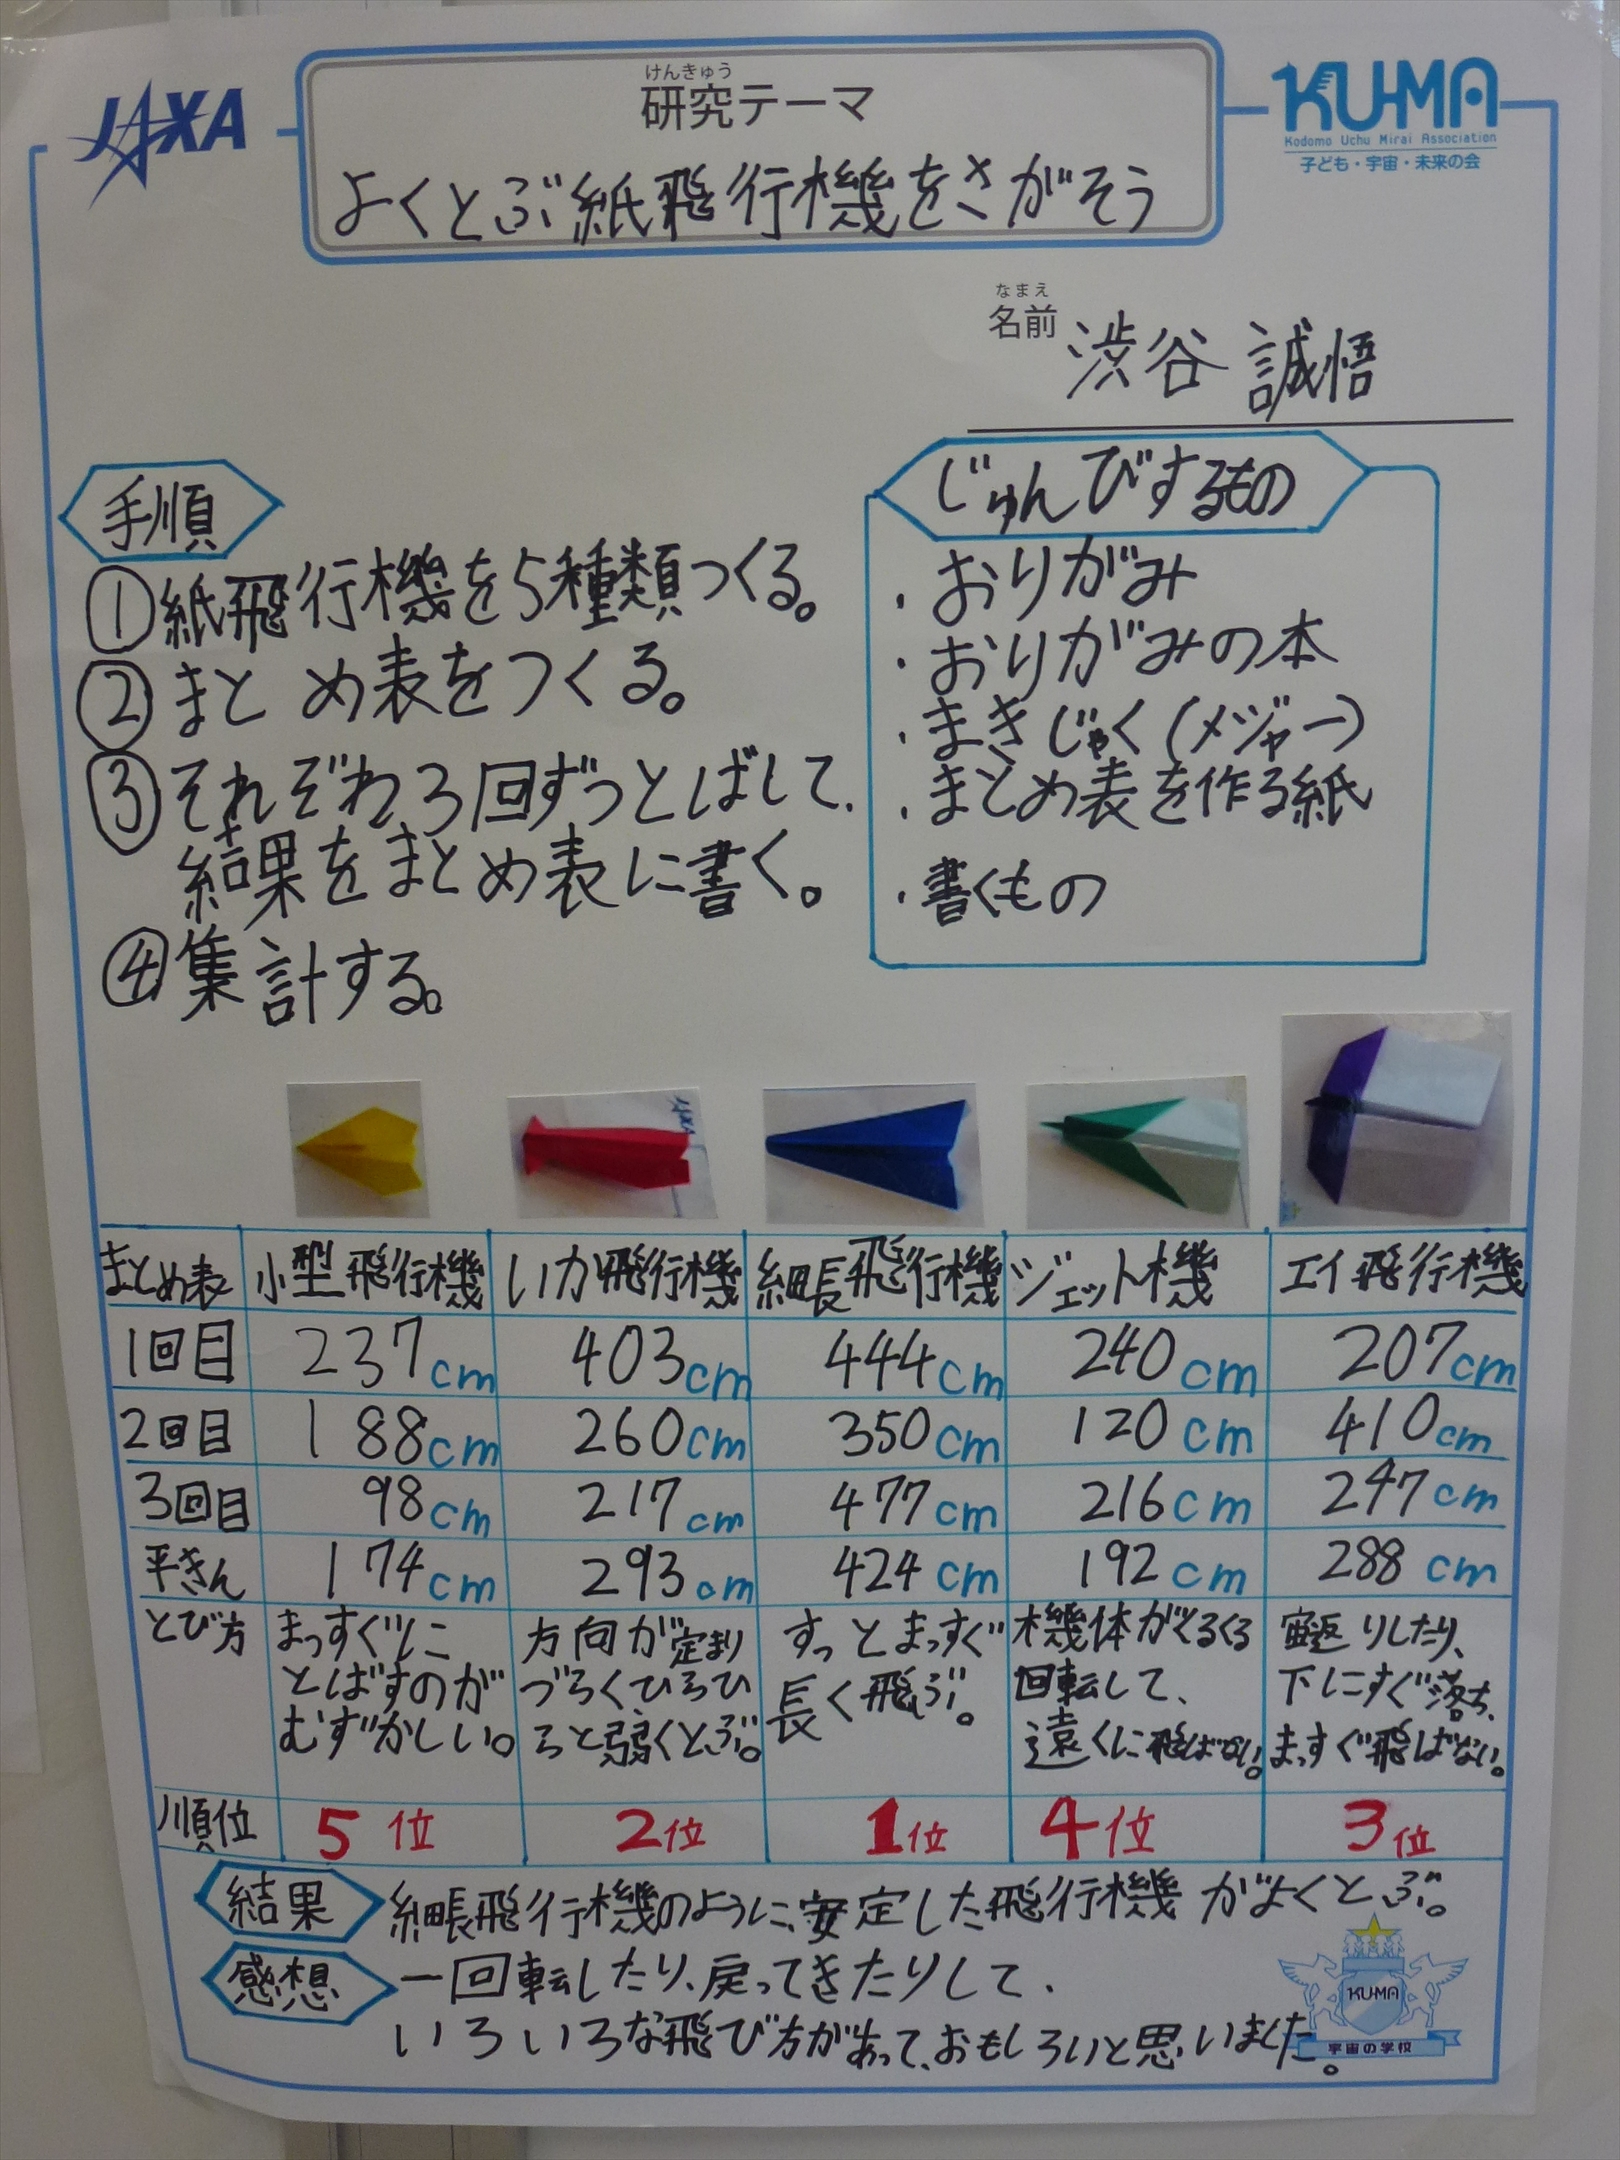 JAXA
けんきゅう
研究テーマ
よくとぶ紙飛行機をさがそう
KUMA
Kodomo Uchu Mirai Association
子ども・宇宙・未来の会
なまえ
名前 渋谷 誠悟
手順
①紙飛行機を5種類つくる。
②まとめ表をつくる。
③それぞれ3回ずつとばして、
結果をまとめ表に書く。
④集計する。
じゅんびするもの
・おりがみ
・おりがみの本
・まきじゃく(メジャー)
・まとめ表を作る紙
・書くもの
まとめ表 小型飛行機 いか飛行機 細長飛行機 ジェット機 エイ飛行機
1回目 237cm 403cm 444cm 240cm 207cm
2回目 188cm 260cm 350cm 120cm 410cm
3回目 98cm 217cm 477cm 216cm 247cm
平きん 174cm 293cm 424cm 192cm 288cm
とび方
まっすぐに
とばすのが
むずかしい。
方向が定まり
づらくひらひ
らと弱くとぶ。
すっとまっすぐ
長く飛ぶ。
機体がくるくる
回転して、
遠くに飛ばない。
宙返りしたり、
下にすぐ落ち、
まっすぐ飛ばない。
順位 5位 2位 1位 4位 3位
結果 細長飛行機のように、安定した飛行機がよくとぶ。
感想 一回転したり、戻ってきたりして、
いろいろな飛び方があって、おもしろいと思いました。
KUMA
宇宙の学校